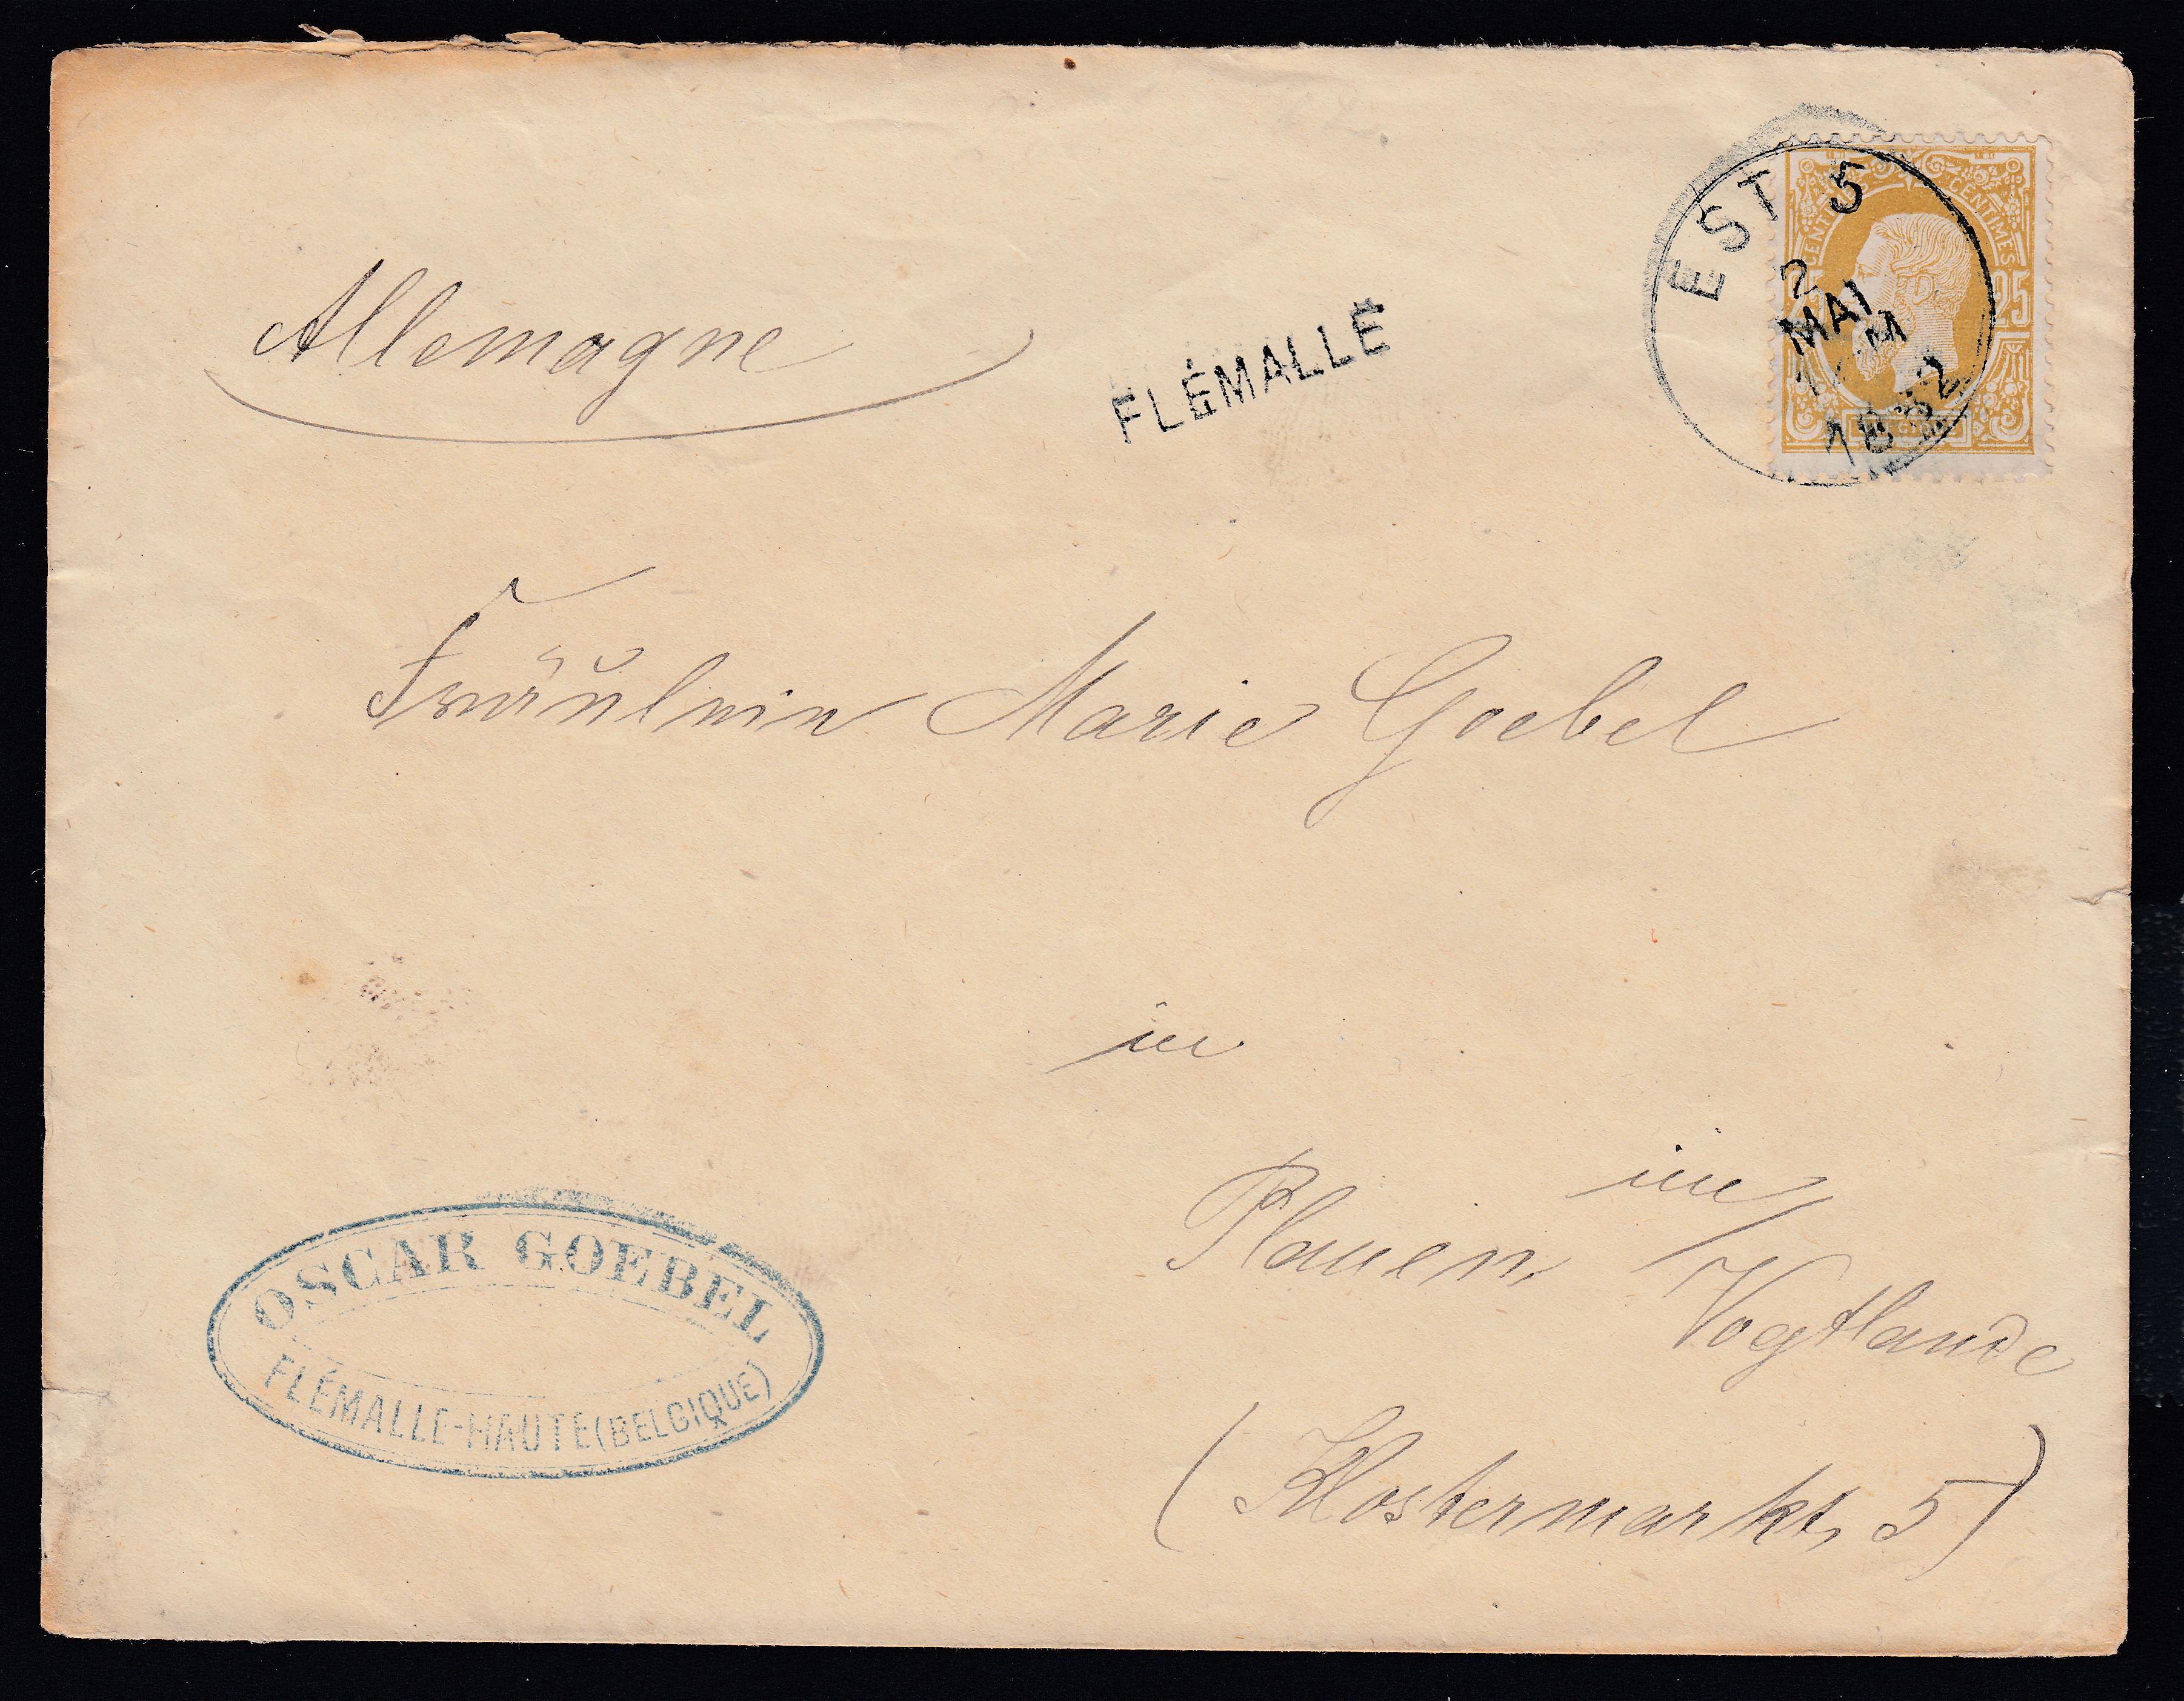 Allemagne
FLÉMALLE
EST 5
2
MAI
M
1882
CENTIMES
25
Fräulein Marie Goebel
in
Plauen im
Vogtlande
(Klostermarkt, 5)
OSCAR GOEBEL
FLÉMALLE-HAUTE (BELGIQUE)